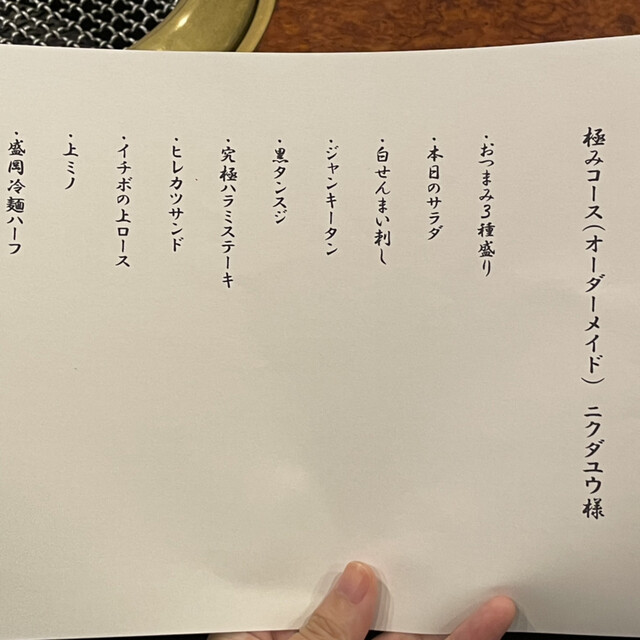 極みコース（オーダーメイド）　ニクダユウ様
・おつまみ3種盛り
・本日のサラダ
・白せんまい刺し
・ジャンキータン
・黒タンスジ
・究極ハラミステーキ
・ヒレカツサンド
・イチボの上ロース
・上ミノ
・盛岡冷麺ハーフ